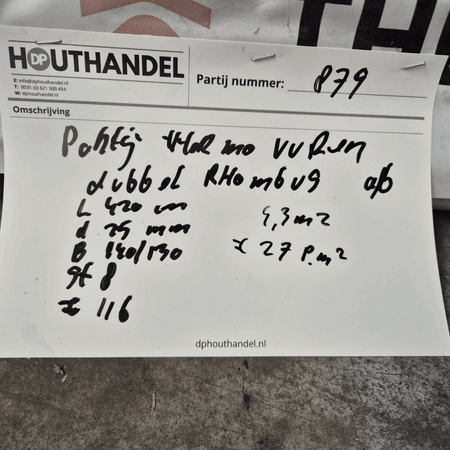 HOUTHANDEL
DP
E: info@dphouthandel.nl
T: 0031 (0) 621 500 454
W: dphouthandel.nl
Partij nummer: 879
Omschrijving
Partij thermo vuren
dubbel Rhombus a/b
L 420 cm
d 25 mm
B 140/130
st 8
x 116
4,3 m2
x 27 P.m2
dphouthandel.nl